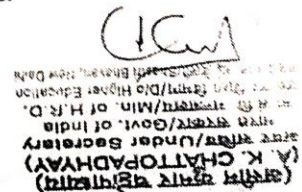 (असीम कुमार चट्टोपाध्याय)
(A. K. CHATTOPADHYAY)
अवर सचिव/Under Secretary
भारत सरकार/Govt. of India
मा सं वि मंत्रालय/Min. of H.R.D.
विभाग/D/o Higher Education
Bhavan, New Delhi